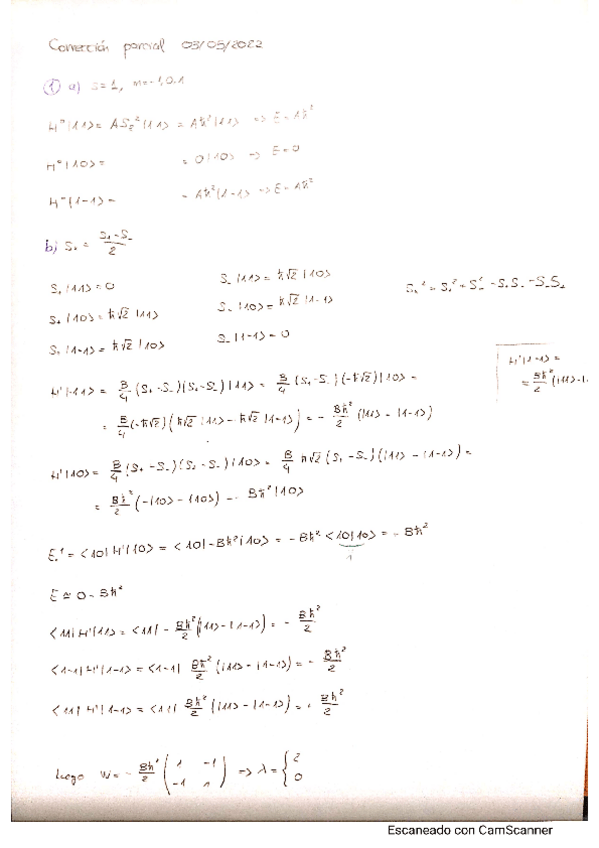 Corrección parcial 03/05/2022
① a) S=1, m=-1,0,1
H⁰|11> = AS_z²|11> = Aħ²|11> => E=Aħ²
H⁰|10> = = 0|10> => E=0
H⁰|1-1> = = Aħ²|1-1> => E=Aħ²
b) Sₓ = (S₊-S₋)/2
S₊|11> = 0 S₋|11> = ħ√2|10>
S₊|10> = ħ√2|11> S₋|10> = ħ√2|1-1>
S₊|1-1> = ħ√2|10> S₋|1-1> = 0
Sₓ² = S₊² + S₋² - S₊S₋ - S₋S₊
H'|1-1> =
= Bħ²/2 (|11>-|1-
H'|11> = B/4 (S₊-S₋)(S₊-S₋)|11> = B/4 (S₊-S₋)(-ħ√2)|10> =
= B/4 (-ħ√2)(ħ√2|11> - ħ√2|1-1>) = - Bħ²/2 (|11> - |1-1>)
H'|10> = B/4 (S₊-S₋)(S₊-S₋)|10> = B/4 ħ√2 (S₊-S₋)(|11> - |1-1>) =
= Bħ²/2 (-|10> - |10>) = - Bħ²|10>
E¹ = <10|H'|10> = <10|-Bħ²|10> = -Bħ² <10|10> = -Bħ²
1
E ≅ 0 - Bħ²
<11|H'|11> = <11| - Bħ²/2 (|11> - |1-1>) = - Bħ²/2
<1-1|H'|1-1> = <1-1| Bħ²/2 (|11> - |1-1>) = - Bħ²/2
<11|H'|1-1> = <11| Bħ²/2 (|11> - |1-1>) = Bħ²/2
Luego W = - Bħ²/2 (1 -1; -1 1) => λ = {2; 0
Escaneado con CamScanner